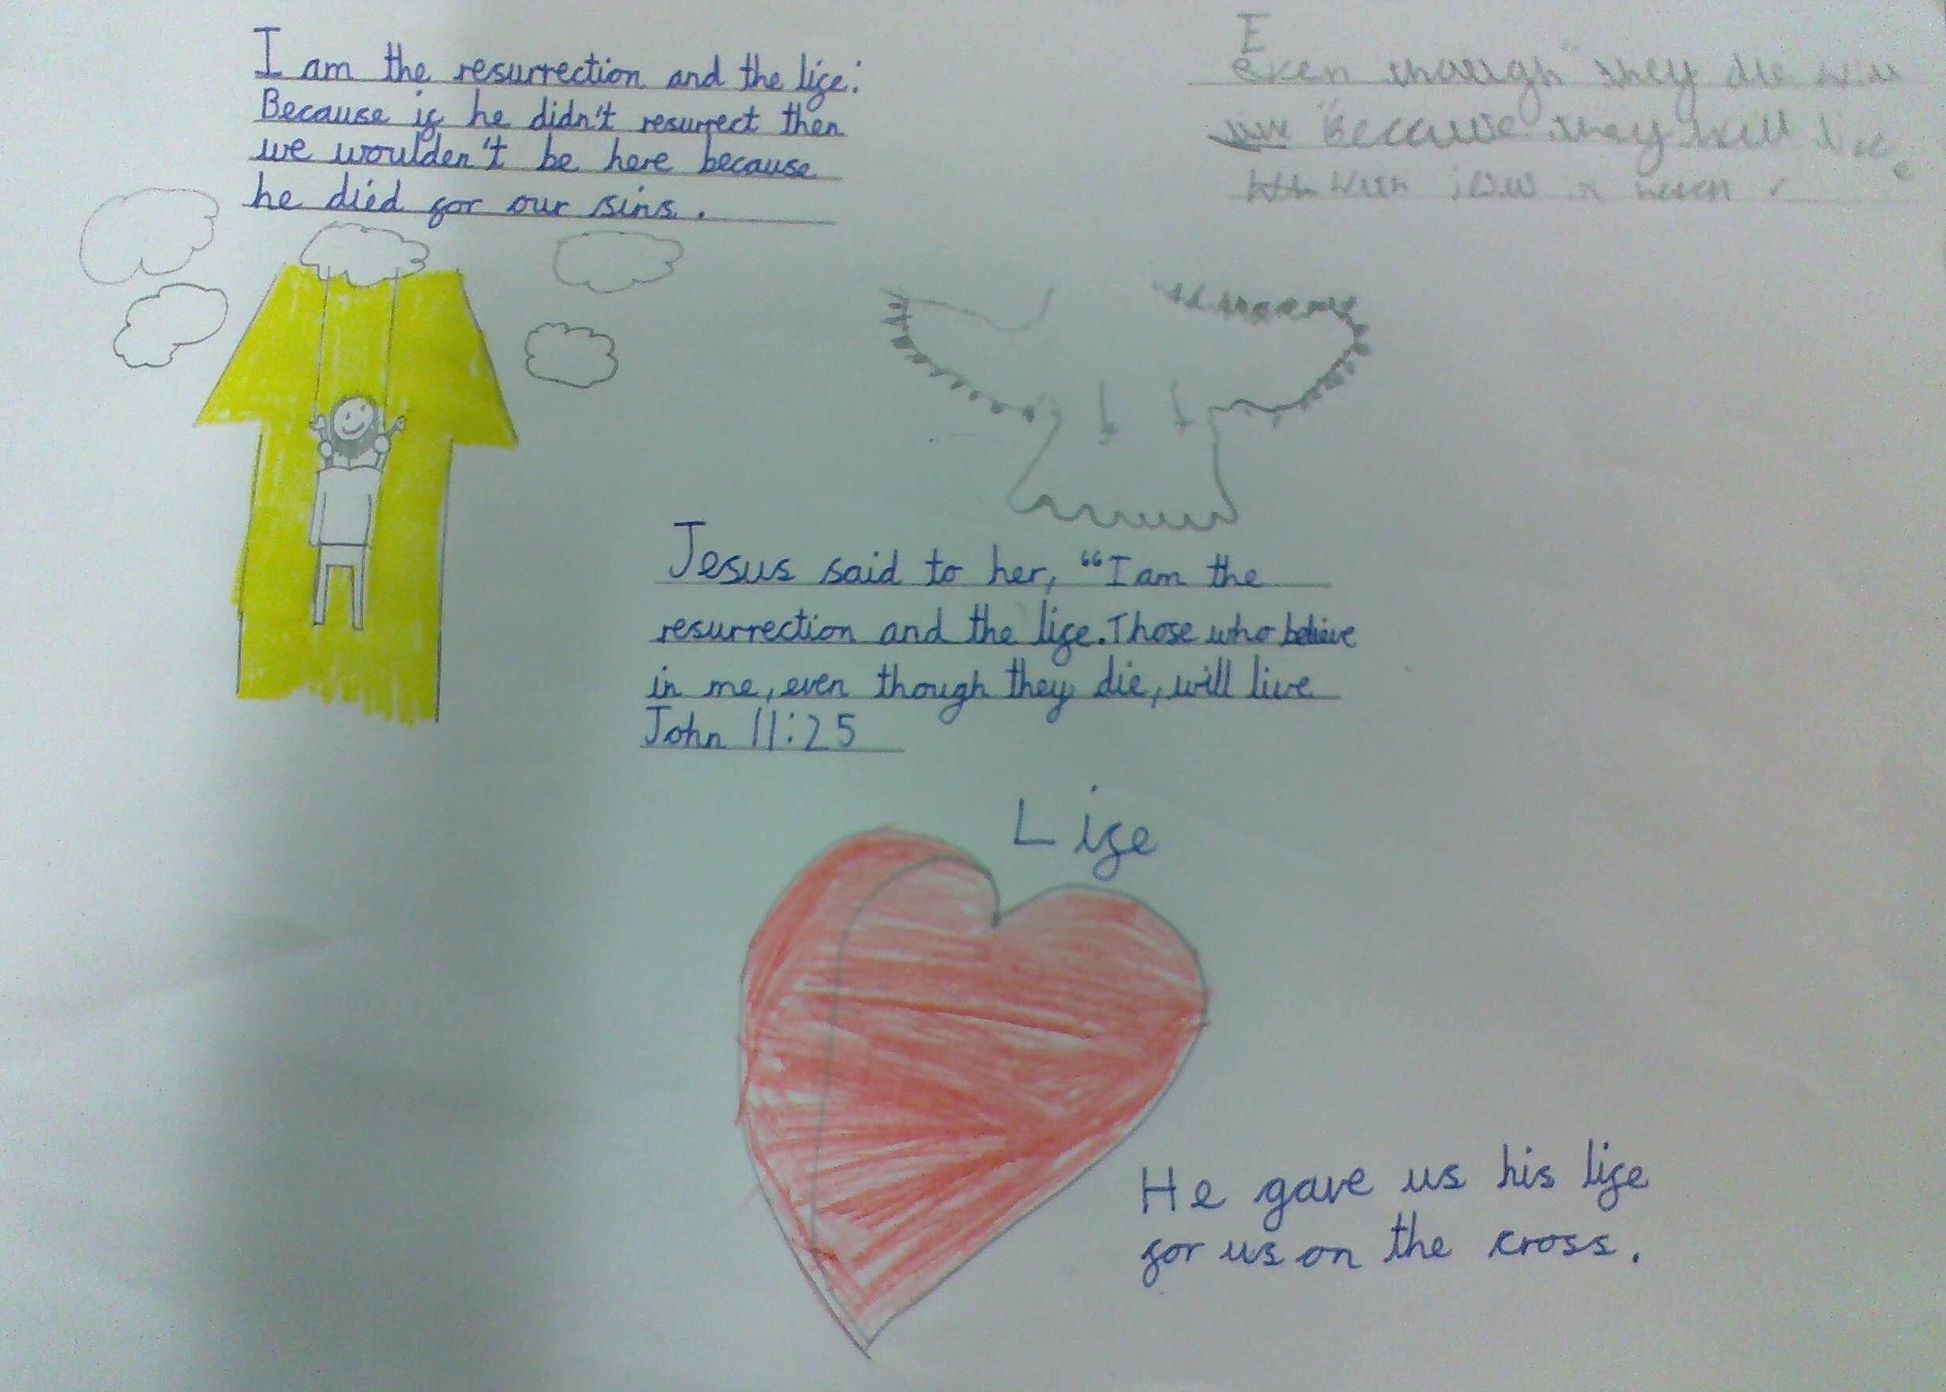 I am the resurrection and the life:
Because if he didn't resurrect then
we woulden't be here because
he died for our sins.
E
even though they die will
"Because they will live
with in heven
Jesus said to her, "I am the
resurrection and the life. Those who believe
in me, even though they die, will live
John 11:25
Life
He gave us his life
for us on the cross.